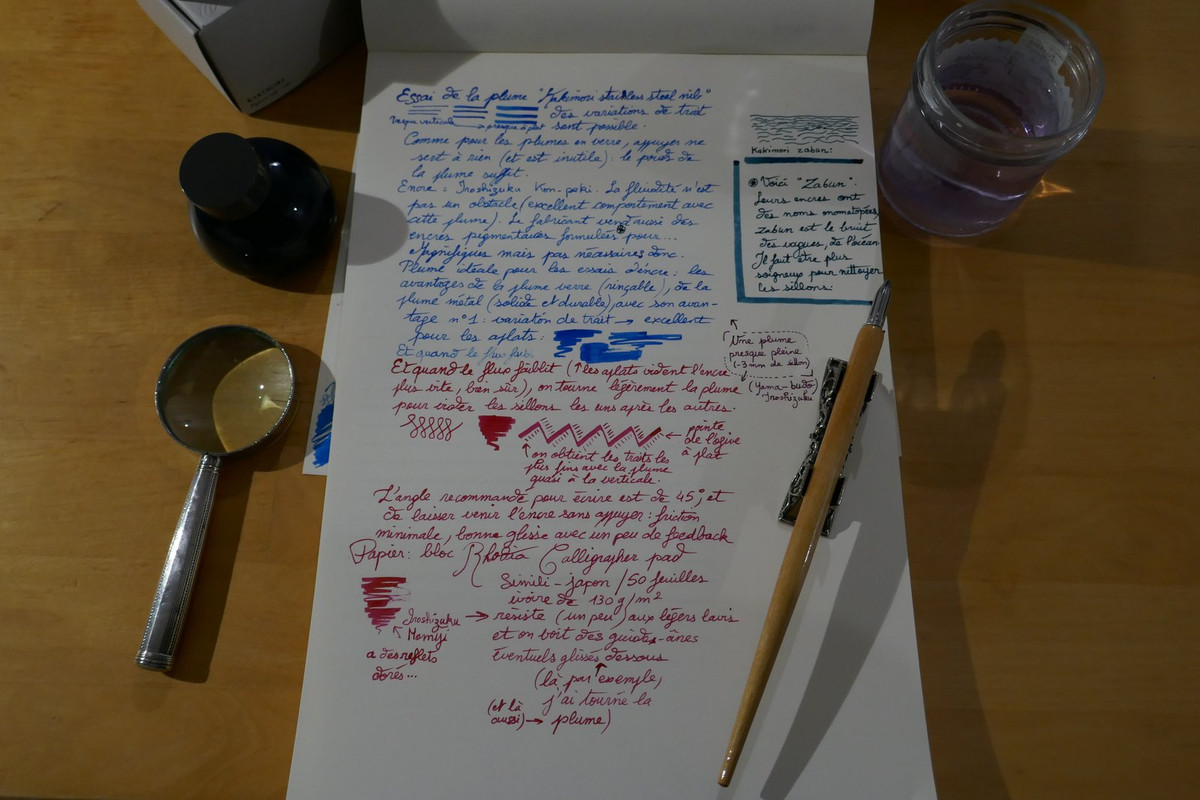 KAKIMORI
Essai de la plume "Kakimori stainless steel nib"
des variations de trait
vasque verticale → presque à plat sont possible.
Comme pour les plumes en verre, appuyer ne
sert à rien (et est inutile) : le poids de
la plume suffit.
Encre = Iroshizuku Kon-peki. La fluidité n'est
pas un obstacle (excellent comportement avec
cette plume). Le fabricant vend aussi des
encres pigmentaires formulées pour...
Magnifiques mais pas nécessaires donc.
Plume idéale pour les essais d'encre : les
avantages de la plume verre (rinçable), de la
plume métal (solide et durable), avec son avan-
tage n°1 : variation de trait → excellent
pour les aplats :
Et quand le flux faib
Et quand le flux faiblit (↑ les aplats vident l'encre
plus vite, bien sûr), on tourne légèrement la plume
pour vider les sillons les uns après les autres.
← pointe
de l'ogive
à plat
↑ on obtient les traits les
plus fins avec la plume
quasi à la verticale.
L'angle recommandé pour écrire est de 45°, et
de laisser venir l'encre sans appuyer : friction
minimale, bonne glisse avec un peu de feedback
Papier : bloc Rhodia Calligrapher pad
Simili-japon / 50 feuilles
ivoire de 130 g/m²
→ résiste (un peu) aux légers lavis
et on voit des guides-ânes
éventuels glissés dessous
(là par exemple,
j'ai tourné la
(et là
aussi) → plume)
Iroshizuku
Momiji
a des reflets
dorés...
Kakimori zabun:
Voici "Zabun".
Leurs encres ont
des noms onomatopées,
zabun est le bruit
des vagues, de l'océan
Il faut être plus
soigneux pour nettoyer
les sillons.
Une plume
presque pleine
(-3 mm de sillon)
(Yama-budo
Iroshizuku)